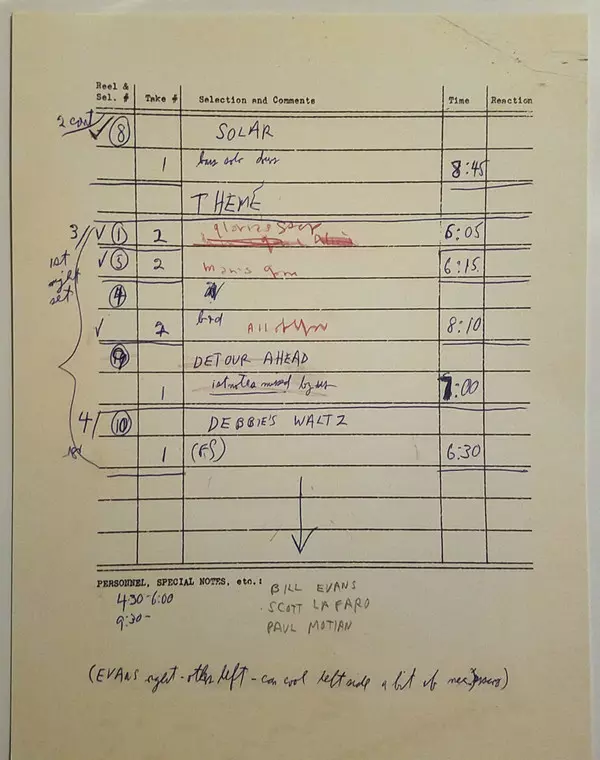 Reel &
Sel. # Take # Selection and Comments Time Reaction
2 cont 8 SOLAR
1 8:45
THEME
3 1 2 gloria's step 6:05
5 2 6:15
1st night set
4
2 All of You 8:10
DETOUR AHEAD
1 1st notes missed by us 7:00
4/ 10 DEBBIE'S WALTZ
1 (FS) 6:30
PERSONNEL, SPECIAL NOTES, etc.:
4:30-6:00 BILL EVANS
9:30- SCOTT LA FARO
PAUL MOTIAN
(EVANS right - others left - can cool left side a bit if necessary)